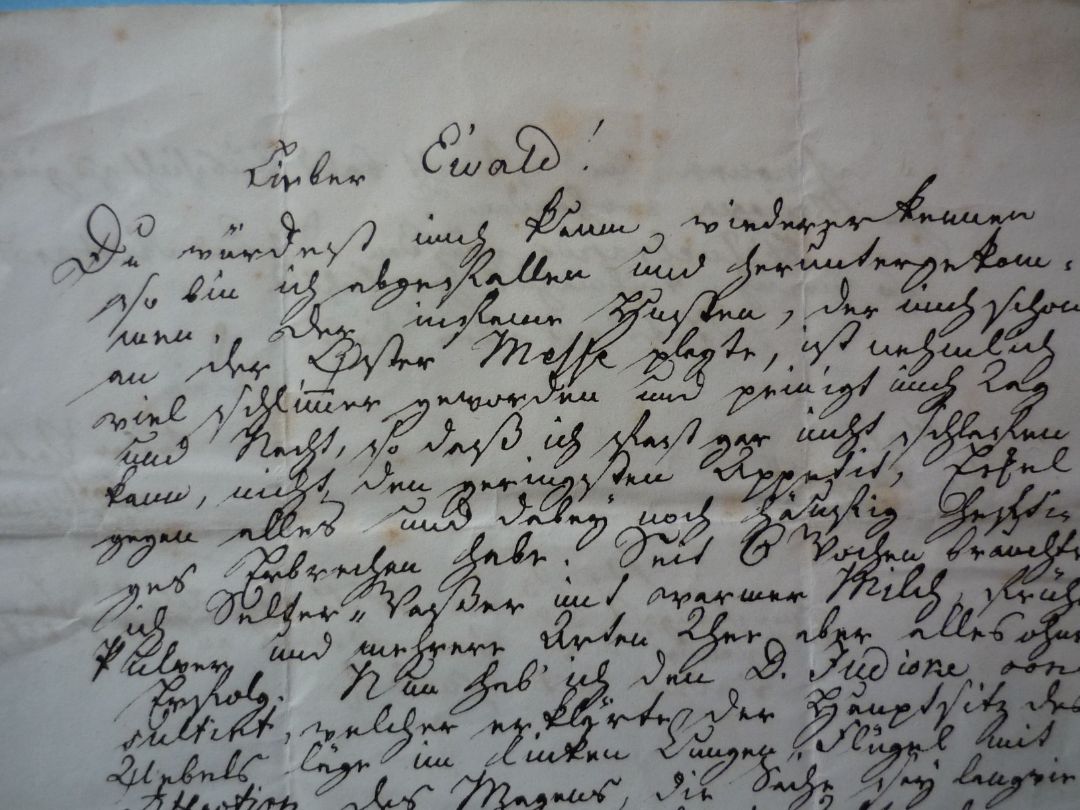 Lieber Ewald!
Du würdest mich kaum wiedererkennen
so bin ich abgefallen und heruntergekom-
men. Der infame Husten, der mich schon
an der Oster Messe plagte, ist nehmlich
viel schlimmer geworden und peinigt mich Tag
und Nacht, so daß ich fast gar nicht schlafen
kann, nicht den geringsten Appetit, Eckel
gegen alles und dabey noch häufig hefti-
ges Erbrechen habe. Seit 6 Wochen brauchte
ich Selter-Waßer mit warmer Milch,
Pulver und mehrere Arten Thee aber alles ohne
Erfolg. Nun hab ich den D. con-
sultirt, welcher erklärte, der Hauptsitz des
Uebels läge im linken Lungen Flügel mit
des Magens, die Sache sey langwie